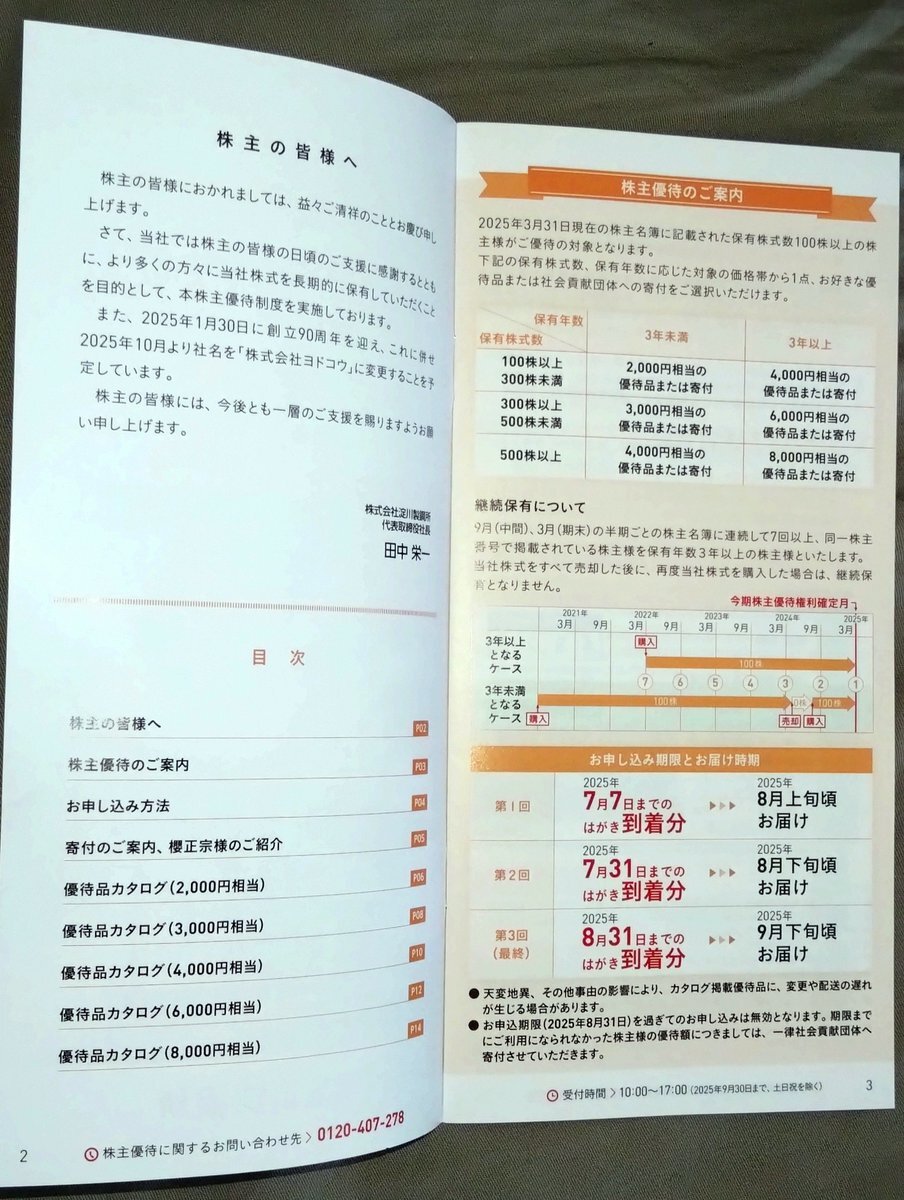 株主の皆様へ
株主の皆様におかれましては、益々ご清祥のこととお慶び申し
上げます。
さて、当社では株主の皆様の日頃のご支援に感謝するととも
に、より多くの方々に当社株式を長期的に保有していただくこと
を目的として、本株主優待制度を実施しております。
また、2025年1月30日に創立90周年を迎え、これに併せ
2025年10月より社名を「株式会社ヨドコウ」に変更することを予
定しています。
株主の皆様には、今後とも一層のご支援を賜りますようお願
い申し上げます。
株式会社淀川製鋼所
代表取締役社長
田中 栄一
目 次
株主の皆様へ P02
株主優待のご案内 P03
お申し込み方法 P04
寄付のご案内、櫻正宗様のご紹介 P05
優待品カタログ(2,000円相当) P06
優待品カタログ(3,000円相当) P08
優待品カタログ(4,000円相当) P10
優待品カタログ(6,000円相当) P12
優待品カタログ(8,000円相当) P14
2
株主優待に関するお問い合わせ先 〉 0120-407-278
株主優待のご案内
2025年3月31日現在の株主名簿に記載された保有株式数100株以上の株
主様がご優待の対象となります。
下記の保有株式数、保有年数に応じた対象の価格帯から1点、お好きな優
待品または社会貢献団体への寄付をご選択いただけます。
保有年数
保有株式数
3年未満
3年以上
100株以上
300株未満
2,000円相当の
優待品または寄付
4,000円相当の
優待品または寄付
300株以上
500株未満
3,000円相当の
優待品または寄付
6,000円相当の
優待品または寄付
500株以上
4,000円相当の
優待品または寄付
8,000円相当の
優待品または寄付
継続保有について
9月(中間)、3月(期末)の半期ごとの株主名簿に連続して7回以上、同一株主
番号で掲載されている株主様を保有年数3年以上の株主様といたします。
当社株式をすべて売却した後に、再度当社株式を購入した場合は、継続保
有となりません。
今期株主優待権利確定月
2021年 2022年 2023年 2024年 2025年
3月 9月 3月 9月 3月 9月 3月 9月 3月
3年以上
となる
ケース
購入
100株
⑦ ⑥ ⑤ ④ ③ ② ①
3年未満
となる
ケース
購入
100株
0株
100株
売却 購入
お申し込み期限とお届け時期
第1回
2025年
7月7日までの
はがき到着分
2025年
8月上旬頃
お届け
第2回
2025年
7月31日までの
はがき到着分
2025年
8月下旬頃
お届け
第3回
(最終)
2025年
8月31日までの
はがき到着分
2025年
9月下旬頃
お届け
● 天変地異、その他事由の影響により、カタログ掲載優待品に、変更や配送の遅れ
が生じる場合があります。
● お申込期限(2025年8月31日)を過ぎてのお申し込みは無効となります。期限まで
にご利用になられなかった株主様の優待額につきましては、一律社会貢献団体へ
寄付させていただきます。
受付時間 〉 10:00～17:00 (2025年9月30日まで、土日祝を除く)
3